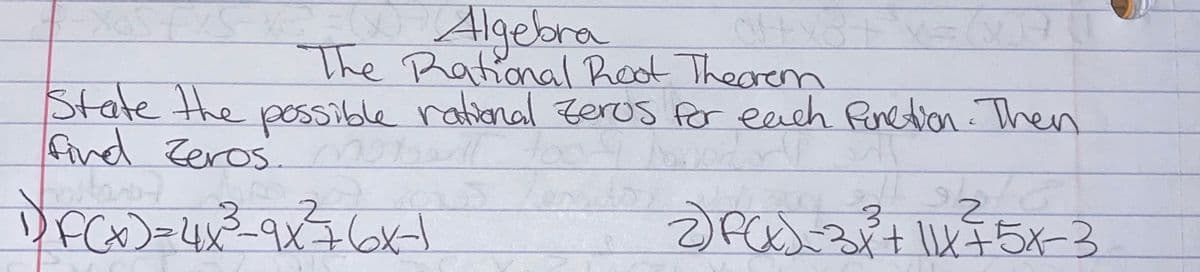 Algebra
The Rational Root Theorem
State the possible rational zeros for each function. Then
find zeros.
1) f(x)=4x³-9x²+6x-1
2) f(x)=3x³+11x²+5x-3